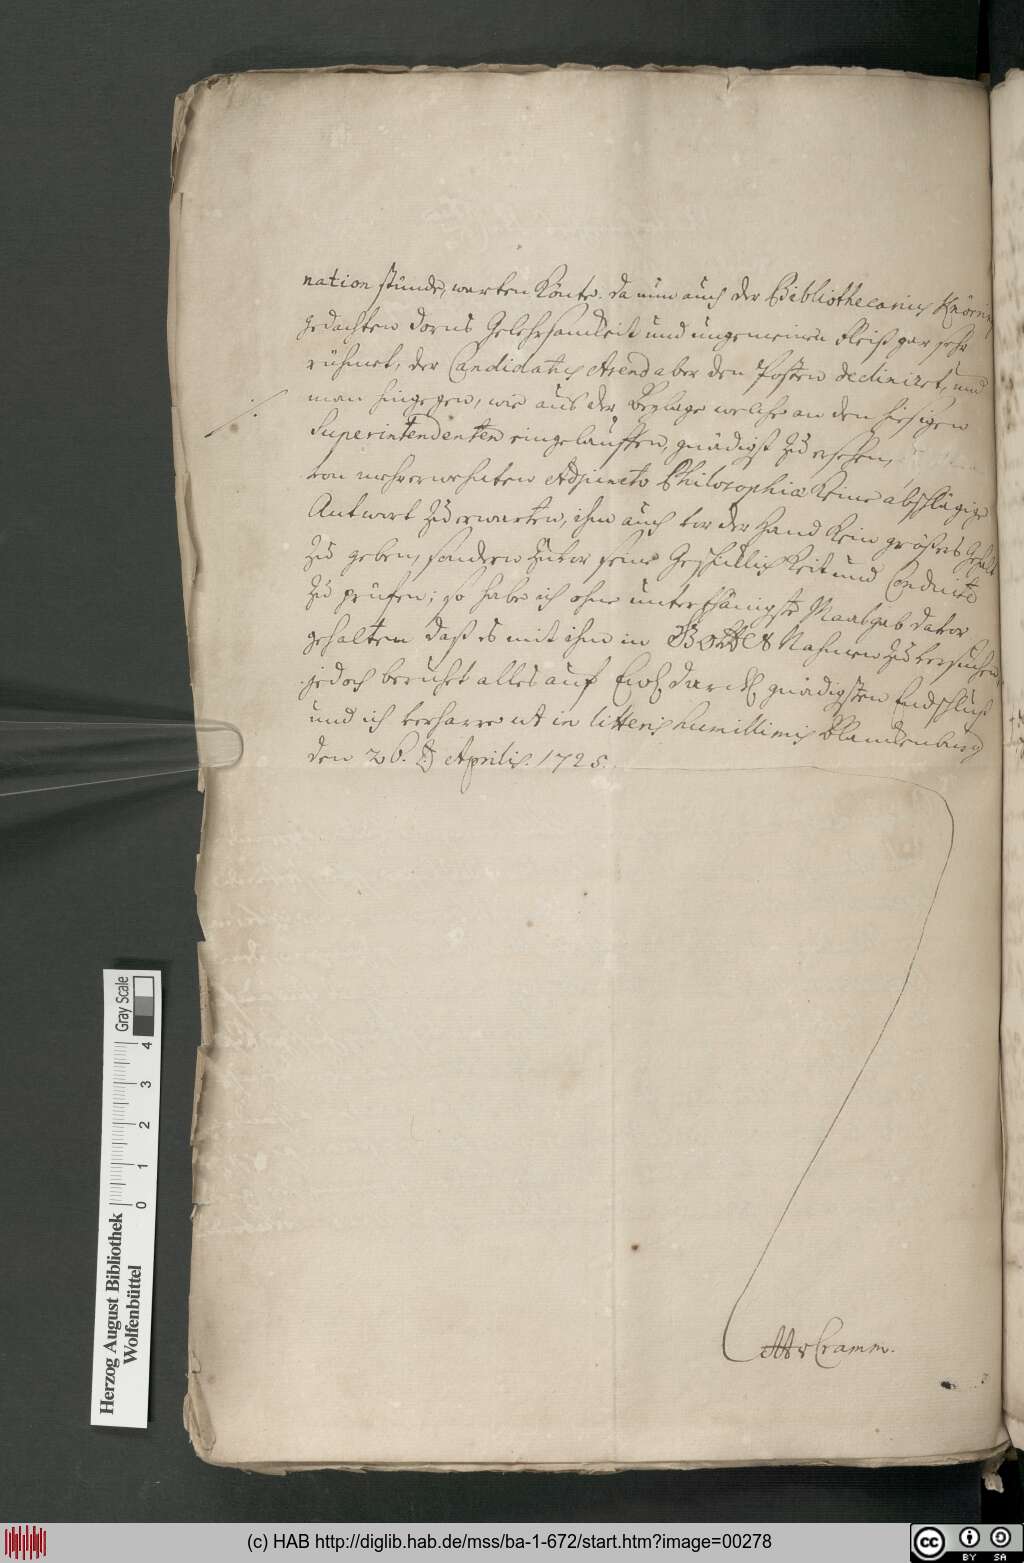 nation stünde, warten könte. da nun auch der Bibliothecarius Knörr
gedachten Dorns Gelehrsamkeit und ungemeinen Fleiß gar sehr
rühmet, der Candidatus Arend aber den Posten decliniret, und
man hingegen, wie aus der Beylage welche an den hiesigen
Superintendenten eingelauffen, gnädigst zu ersehen,
von mehrerwehnten Adjuncto Philosophiæ keine abschlägige
Antwort zu erwarten, ihm auch vor der Hand kein größers Gehalt
zu geben, sondern zuvor seine Geschicklichkeit und Conduite
zu prüfen; so habe ich ohne unterthänigste Maaßgab davor
gehalten daß es mit ihm in Gottes Nahmen zu versuchen,
jedoch beruhet alles auf Ew. gnädigsten Endschluß
und ich verharre ut in litteris humillimis Blanckenburg
den 26. Aprilis. 1725.
v Cramm.
Herzog August Bibliothek
Wolfenbüttel
0 1 2 3 4
Gray Scale
(c) HAB http://diglib.hab.de/mss/ba-1-672/start.htm?image=00278
cc BY SA